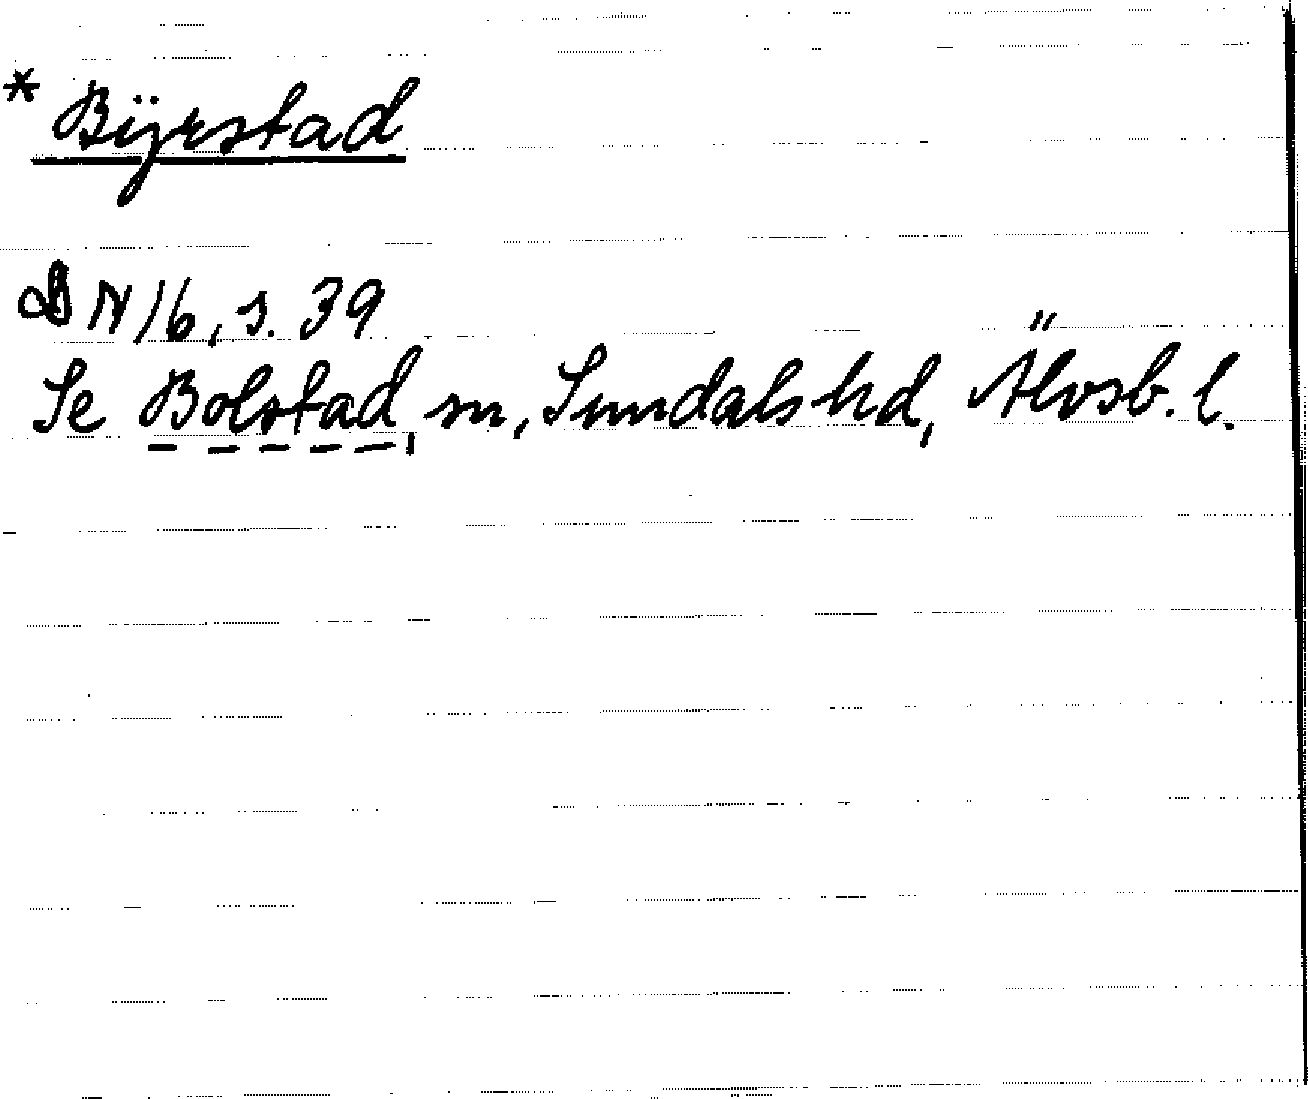 * Bÿrstad
DN 16, s. 39
Se Bolstad sn, Sundals hd, Älvsb. l.